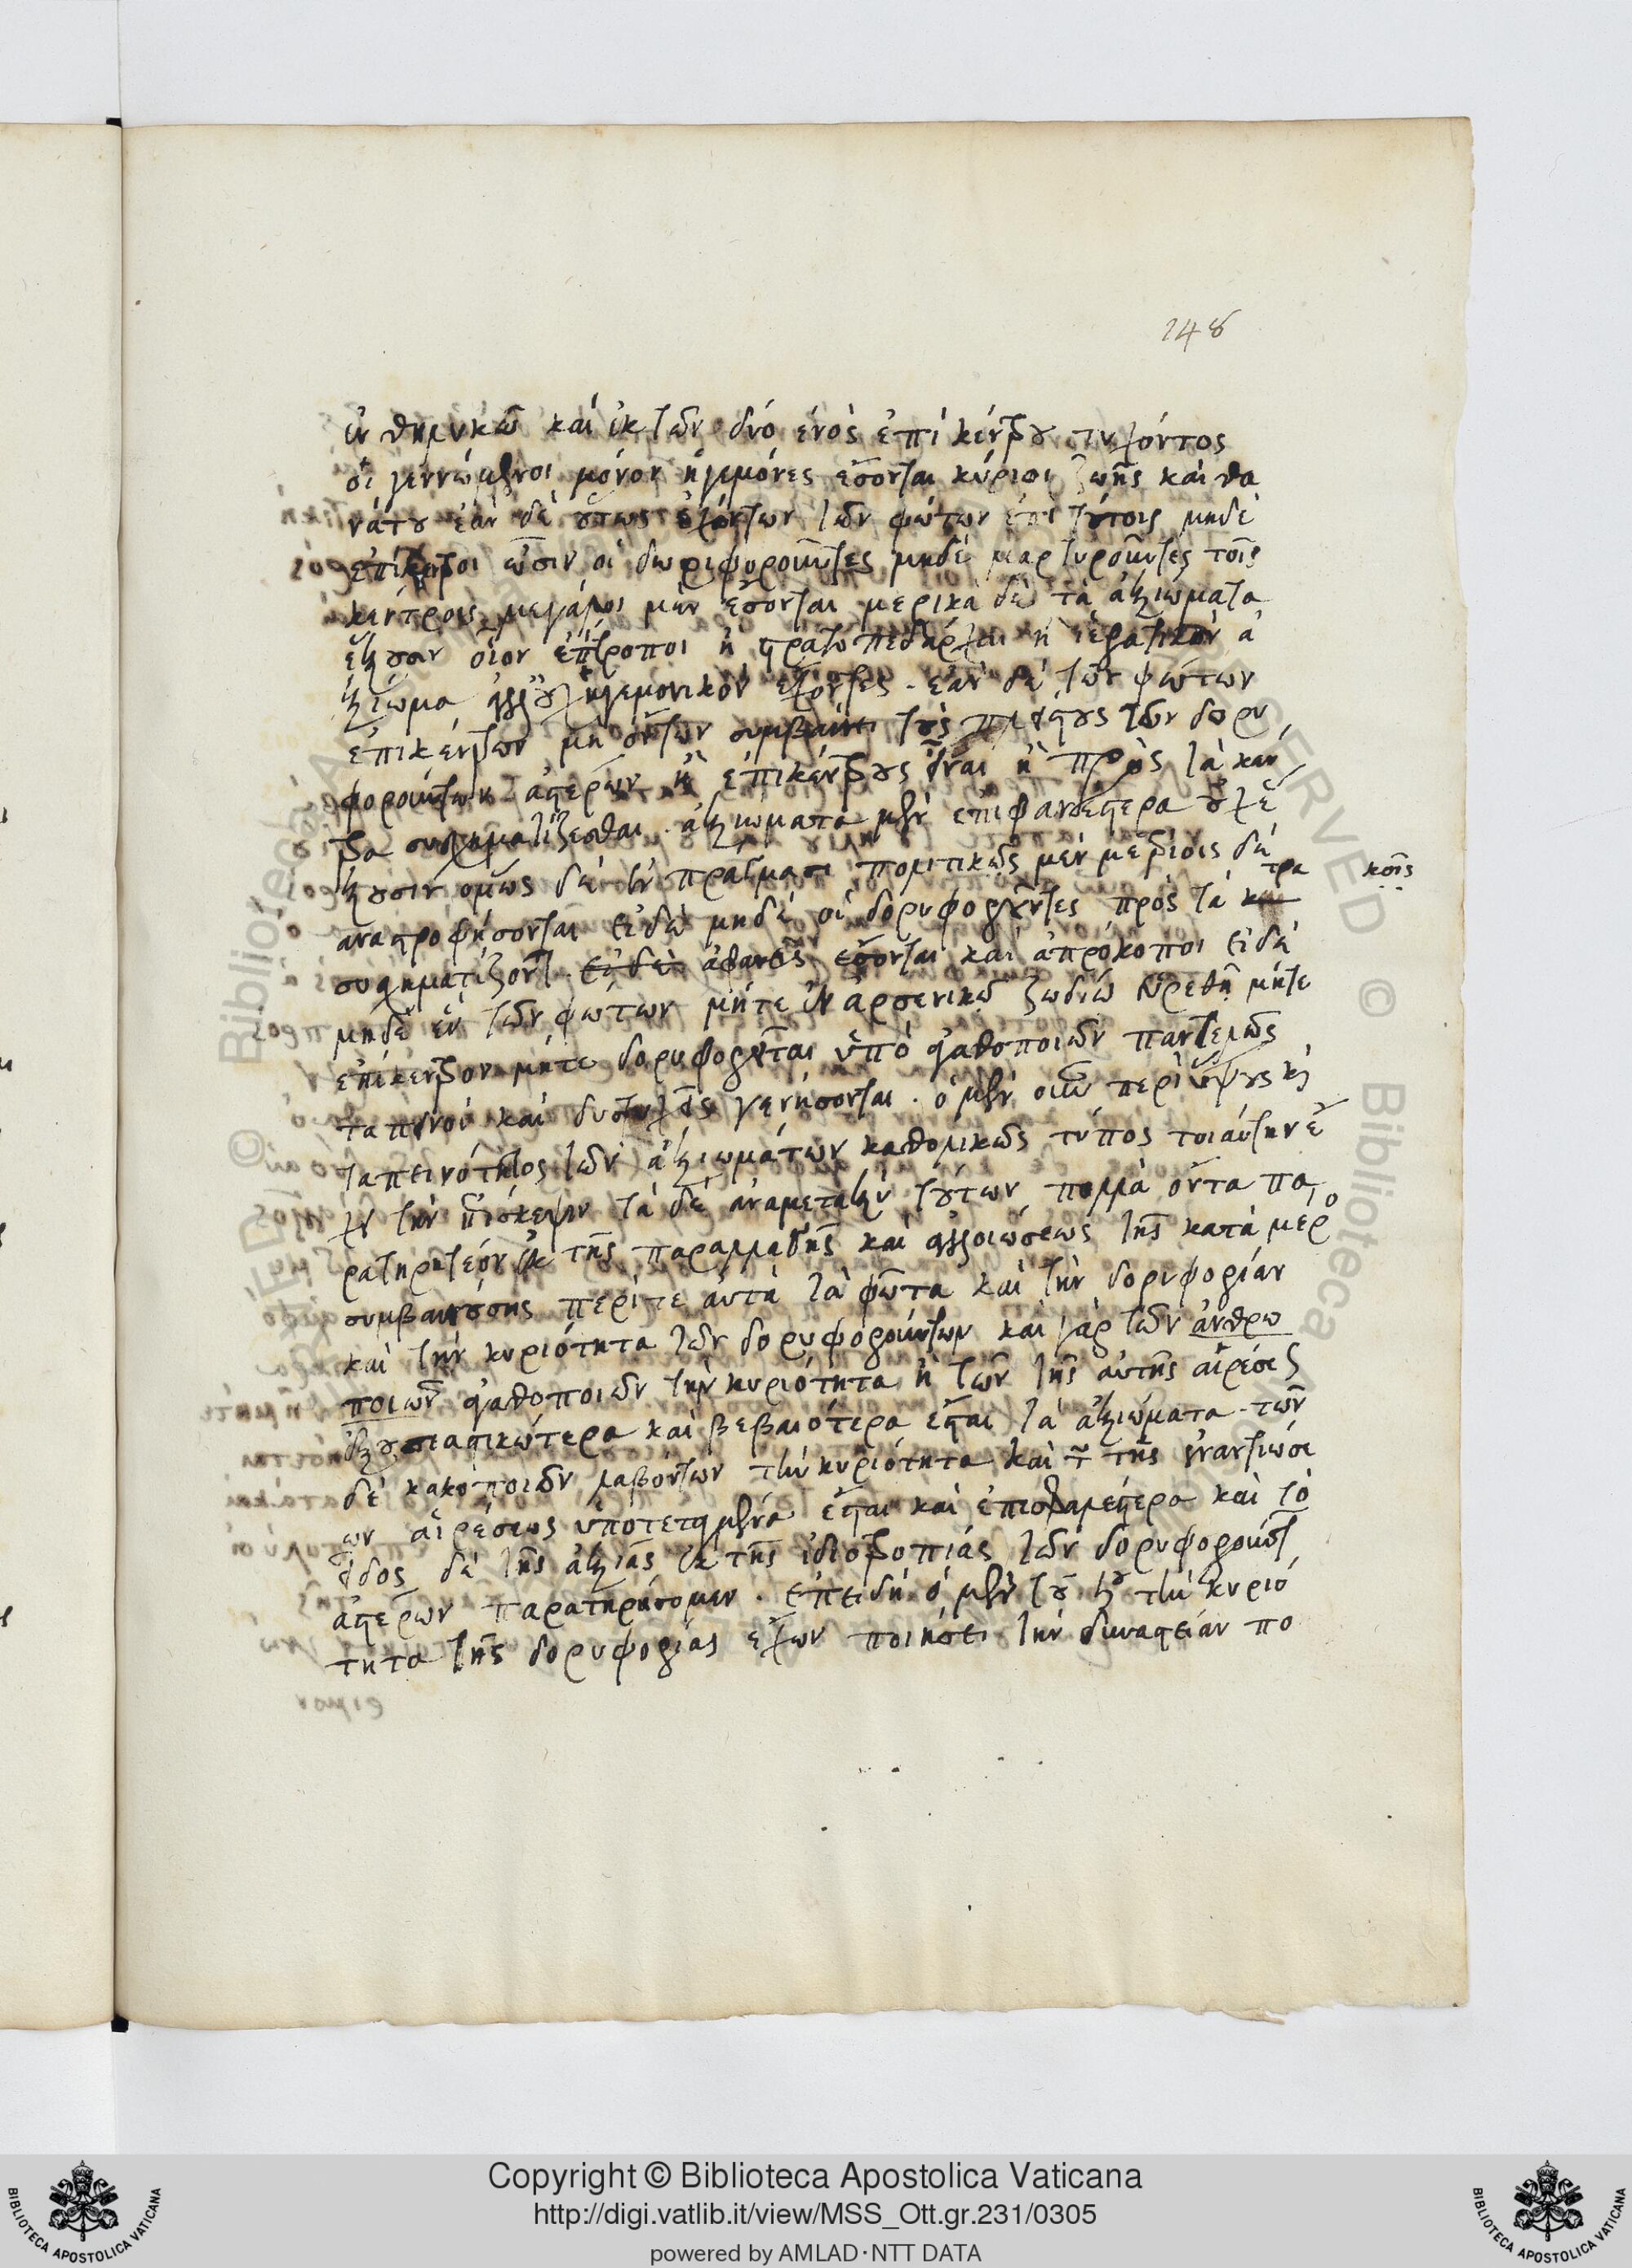 148
ἐν θηλυκῶ καὶ ἐκ τῶν δύο ἑνὸς ἐπὶ κέντρου τυχόντος
οἱ γεννώμενοι μόνον ἡγεμόνες ἔσονται κύριοι ζωῆς καὶ θα
νάτου ἐὰν δὲ οὕτως ἐχόντων τῶν φώτων ἐπὶ τούτοις μηδὲ
ἐπίκεντροι ὦσιν οἱ δωριφοροῦντες μηδὲ μαρτυροῦντες τοῖς
κέντροις μεγάλοι μὲν ἔσονται μερικὰ δὲ τὰ ἀξιώματα
ἕξουσιν οἷον ἐπίτροποι ἢ στρατωπεδάρχαι ἢ ἱερατικὸν ἀ
ξίωμα ἀλλ' οὐχ ἡγεμονικὸν ἔχοντες. ἐὰν δὲ τῶν φώτων
ἐπικέντρων μὴ ὄντων συμβαίνει τοὺς πλείστους τῶν δορυ
φορούντων ἀστέρων ἢ ἐπικέντρους εἶναι ἢ πρὸς τὰ κέν
τρα συσχηματίζεσθαι. ἀξιώματα μὲν ἐπιφανέστερα οὐχ ἕ
ξουσιν ὅμως δὲ ἐν πράγμασι πολιτικοῖς μὲν μετρίοις δὲ κοῖς
ἀναστροφήσονται εἰ δὲ μηδὲ οἱ δορυφοροῦντες πρὸς τὰ κέντρα
συσχηματίζοντ. εἰ δὲ ἀφανεῖς ἔσονται καὶ ἀπρόκοποι εἰ δὲ
μηδὲ ἓν τῶν φώτων μήτε ἐν ἀρσενικῶ ζωδίω εὑρεθῆ μήτε
ἐπίκεντρον μήτε δορυφορεῖται ὑπὸ ἀγαθοποιῶν παντελῶς
ταπεινοὶ καὶ δυστυχεῖς γενήσονται. ὁ μὲν οὖν περὶ ὕψους καὶ
ταπεινότητος τῶν ἀξιωμάτων καθολικῶς τύπος τοιαύτην ἔ
χει τὴν ἐπίσκεψιν τὰ δὲ ἀναμεταξὺ τούτων πολλὰ ὄντα πα
ρατηρητέον ἐκ τῆς παραλλαγῆς καὶ ἀλλοιώσεως τῆς κατὰ μέρο
συμβαινούσης περί τε αὐτὰ τὰ φῶτα καὶ τὴν δορυφορίαν
καὶ τὴν κυριότητα τῶν δορυφορούντων καὶ γὰρ τῶν ἀνθρω
ποιῶν ἀγαθοποιῶν τὴν κυριότητα ἢ τῶν τῆς αὐτῆς αἱρέσεως
ἐξουσιαστικώτερα καὶ βεβαιότερα ἔσται τὰ ἀξιώματα. τῶν
δὲ κακοποιῶν λαβόντων τὴν κυριότητα καὶ τ τῆς ἐναντιώσε
ων αἱρέσεως ὑποτεταγμένα ἔσται καὶ ἐπισφαλέστερα καὶ τὸ
εἶδος δὲ τῆς ἀξίας ἐκ τῆς ἰδιοτροπίας τῶν δορυφορούντ
ἀστέρων παρατηρήσομεν. ἐπειδὴ ὁ μὲν τοῦ τὴν κυριό
τητα τῆς δορυφορίας ἔχων ποιήσει τὴν δυναστείαν πο
Copyright © Biblioteca Apostolica Vaticana
http://digi.vatlib.it/view/MSS_Ott.gr.231/0305
powered by AMLAD·NTT DATA